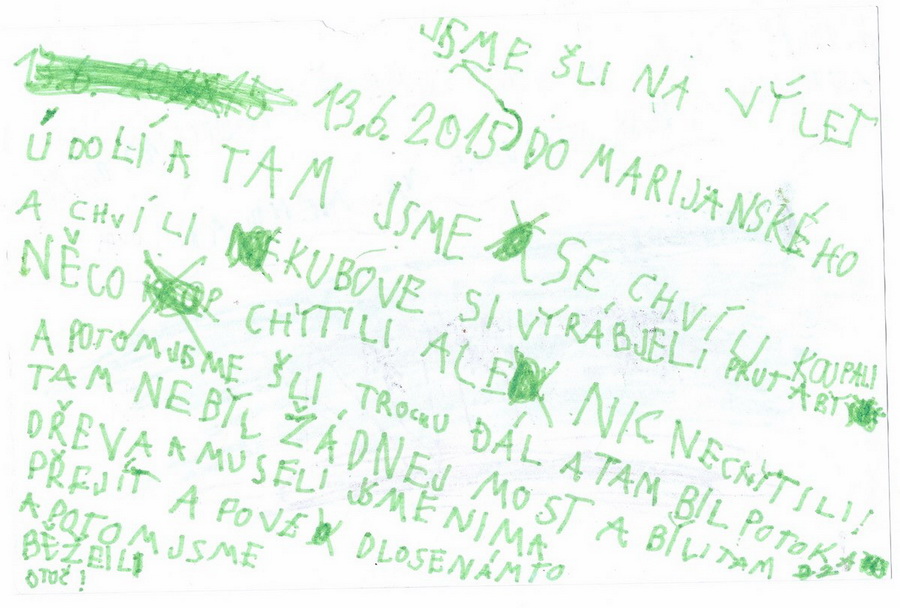 JSME ŠLI NA VÝLET
13.6. 2015 DO MARIJANSKÉHO
ÚDOLÍ A TAM JSME SE CHVÍLI KOUPALI
A CHVÍLI KUBOVE SI VYRÁBJELI PRUT ABY
NĚCO CHYTILI ALE NIC NECHYTILI!
A POTOM JSME ŠLI TROCHU DÁL A TAM BYL POTOK A
TAM NEBYL ŽÁDNEJ MOST A BYLI TAM 2
DŘEVA A MUSELI JSME NIMA
PŘEJÍT A POVEDLO SE NÁM TO
A POTOM JSME
BĚŽELI
OTOČ!